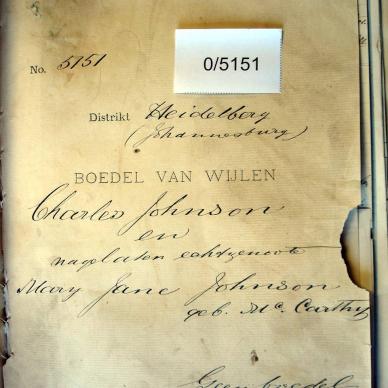 0/5151
No. 5151
Distrikt Heidelberg
(Johannesburg)
BOEDEL VAN WIJLEN
Charles Johnson
en
nagelaten echtgenoote
Mary Jane Johnson
geb. Mc. Carthy
Geen boedel